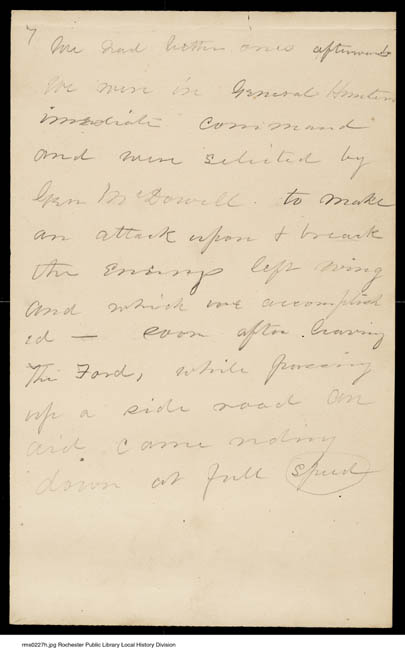 7
We had better ones afterwards
We were in General Hunters
imediate command
and were selected by
Gen McDowell. to make
an attack upon & break
the Enemys left wing
and which we accomplish
ed — soon after leaving
the Ford, while passing
up a side road an
aid came riding
down at full speed
rms0227h.jpg Rochester Public Library Local History Division